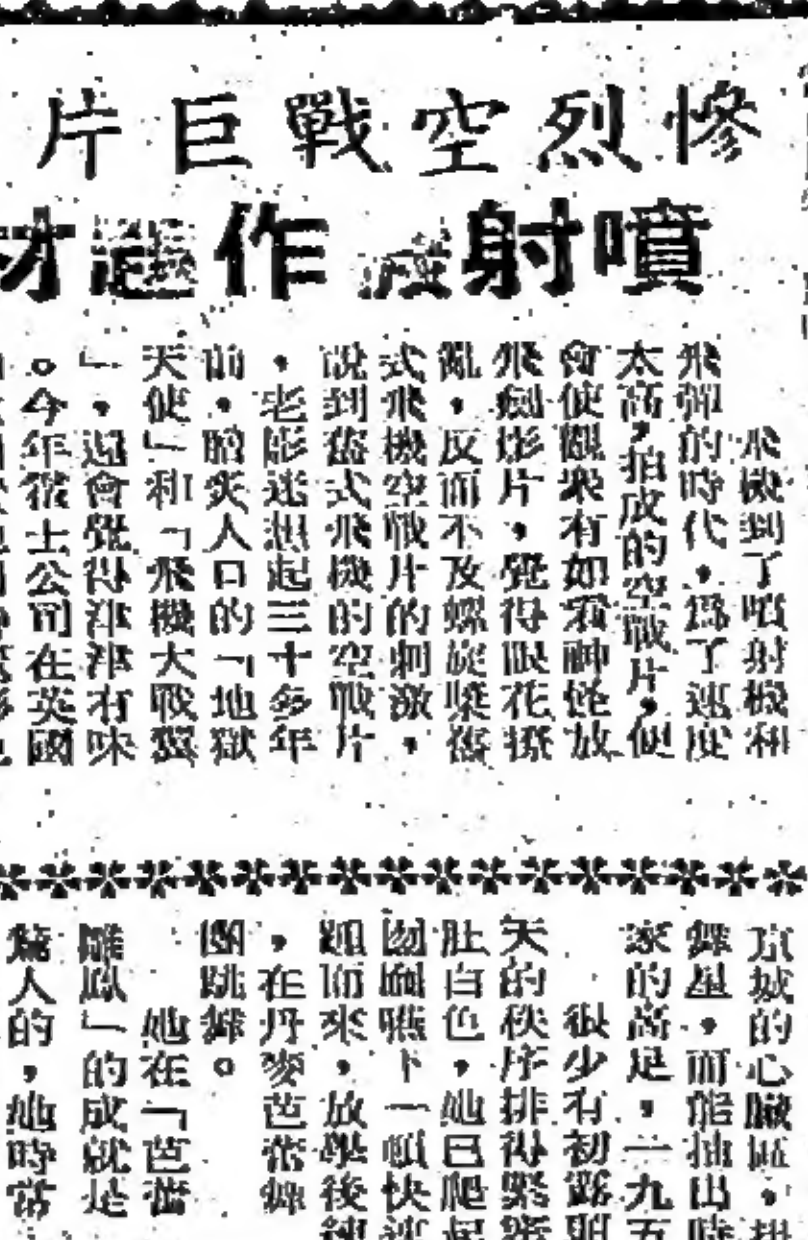 慘烈空戰巨片
噴射作題材
飛機到了噴射機和
飛彈的時代，爲了速度
太高，拍成的空戰片，便
會使觀衆有如看神怪放
飛劍影片，覺得眼花撩
亂，反而不及螺旋槳舊
式飛機空戰片的刺激，
說到舊式飛機的空戰片
，老影迷想起三十多年
前，膾炙人口的「地獄
天使」和「飛機大戰翼
」，還會覺得津津有味
。今年霍士公司在英國
京城的心臟區，
舞星，而能抽出時
家的高足，一九五
很少有初露
天的秩序排得緊密
肚白色，她已爬起
囫圇嚥下一頓快
趕而來，放學後
，在丹麥芭蕾舞
團跳舞。
她在「芭蕾
雛鳳」的成就是
驚人的，她時常